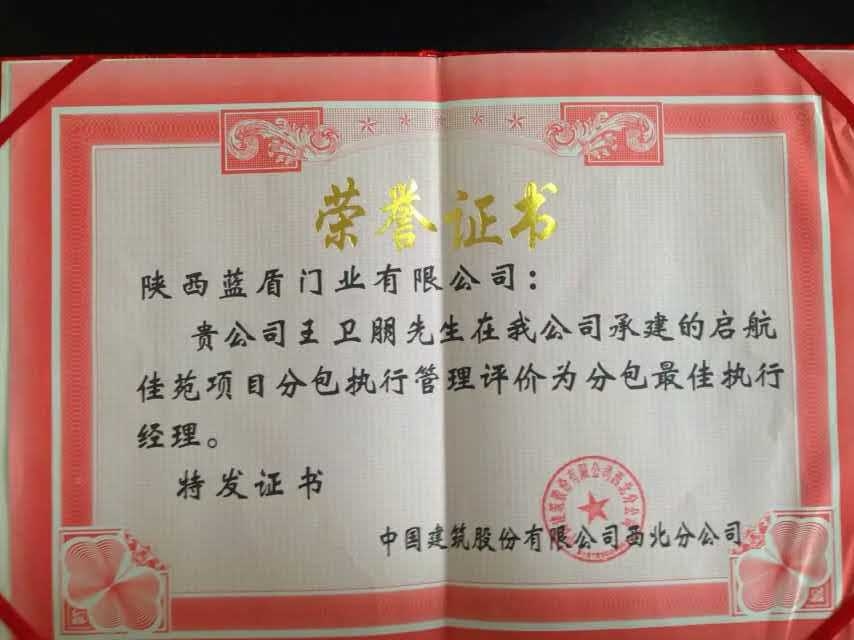 荣誉证书
陕西蓝盾门业有限公司：
贵公司王卫朋先生在我公司承建的启航
佳苑项目分包执行管理评价为分包最佳执行
经理。
特发证书
中国建筑股份有限公司西北分公司